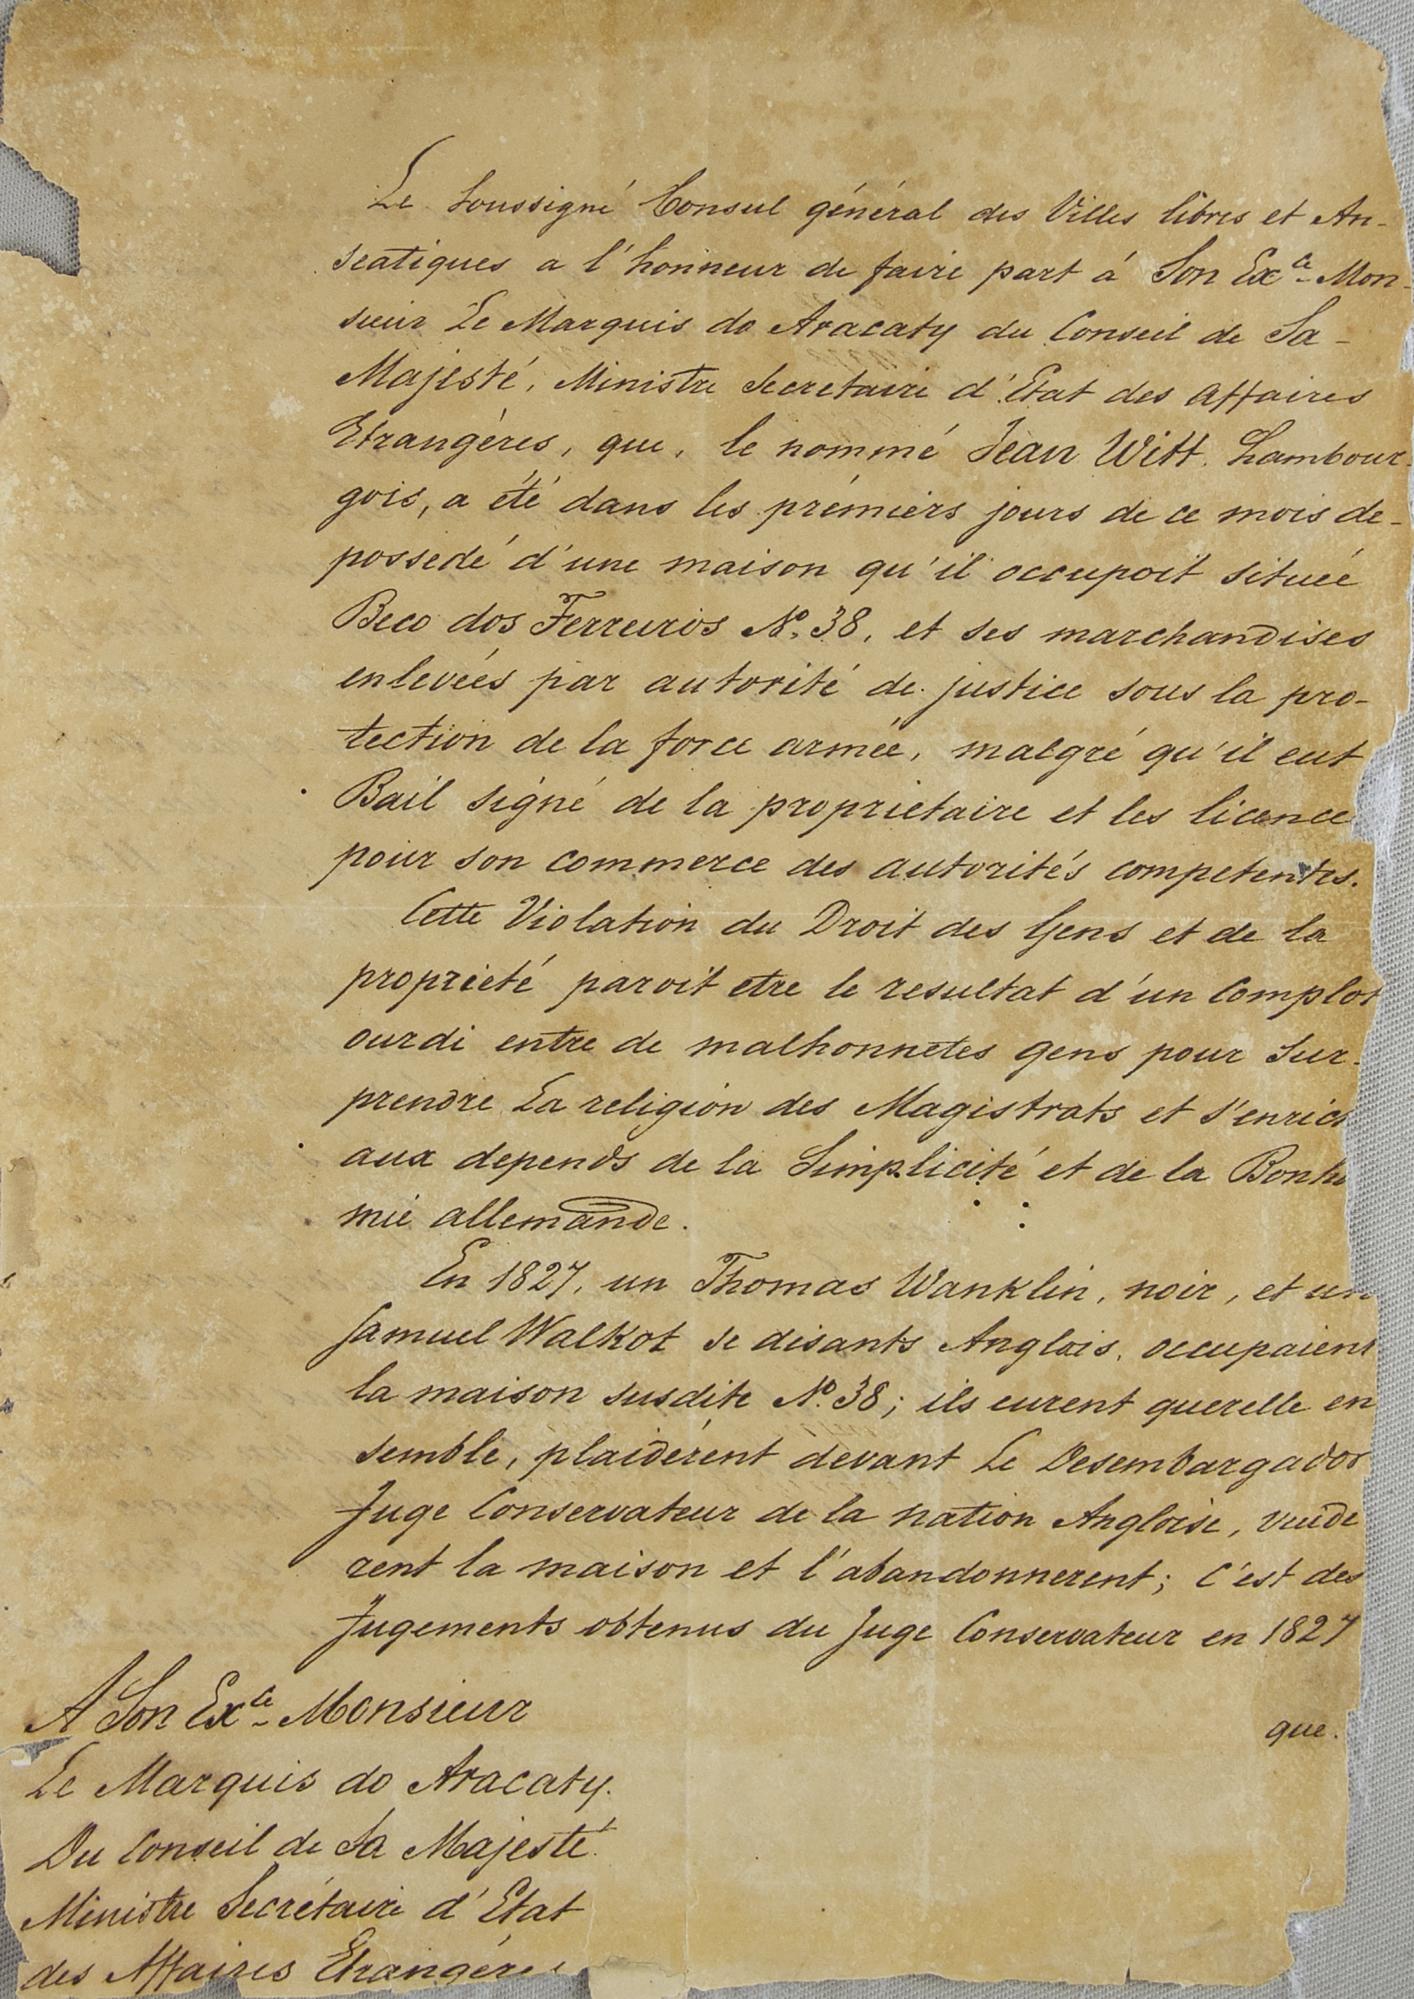 Le Soussigné Consul général des Villes libres et An-
seatiques a l'honneur de faire part á Son Ex.ce Mon-
sieur Le Marquis do Aracaty du Conseil de Sa
Majesté, Ministre Secretaire d'Etat des Affaires
Etrangéres, que, le nommé Jean Witt. Hambour-
gois, a été dans les prémiers jours de ce mois de-
possedé d'une maison qu'il occupoit située
Beco dos Ferreiros Nº. 38, et ses marchandises
enlevées par autorité de justice sous la pro-
tection de la force armée, malgré qu'il eut
Bail signé de la proprietaire et les licence
pour son commerce des autorités competentes.
Cette Violation du Droit des Gens et de la
propriété paroit etre le resultat d'un Complot
ourdi entre de malhonnetes gens pour Sur-
prendre La religion des Magistrats et s'enrich
aux depends de la Simplicité et de la Bonho
mie allemande.
En 1827, un Thomas Wanklin, noir, et un
Samuel Walkot se disants Anglois, occupaient
la maison susdite Nº. 38; ils eurent querelle en
semble, plaidérent devant Le Desembargador
Juge Conservateur de la nation Angloise, vuide
rent la maison et l'abandonnerent; C'est des
Jugements obtenus du Juge Conservateur en 1827
que.
A Son Ex.ce Monsieur
Le Marquis do Aracaty.
Du Conseil de Sa Majesté.
Ministre Secrétaire d'Etat
des Affaires Etrangére